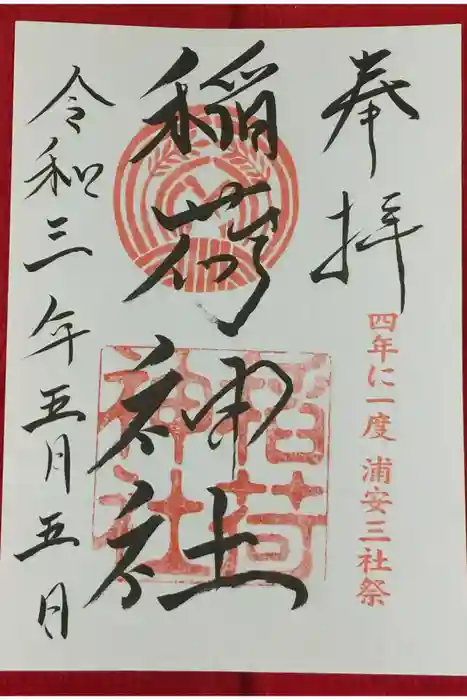 奉拝
四年に一度 浦安三社祭
稲荷神社
稲荷神社
令和三年五月五日